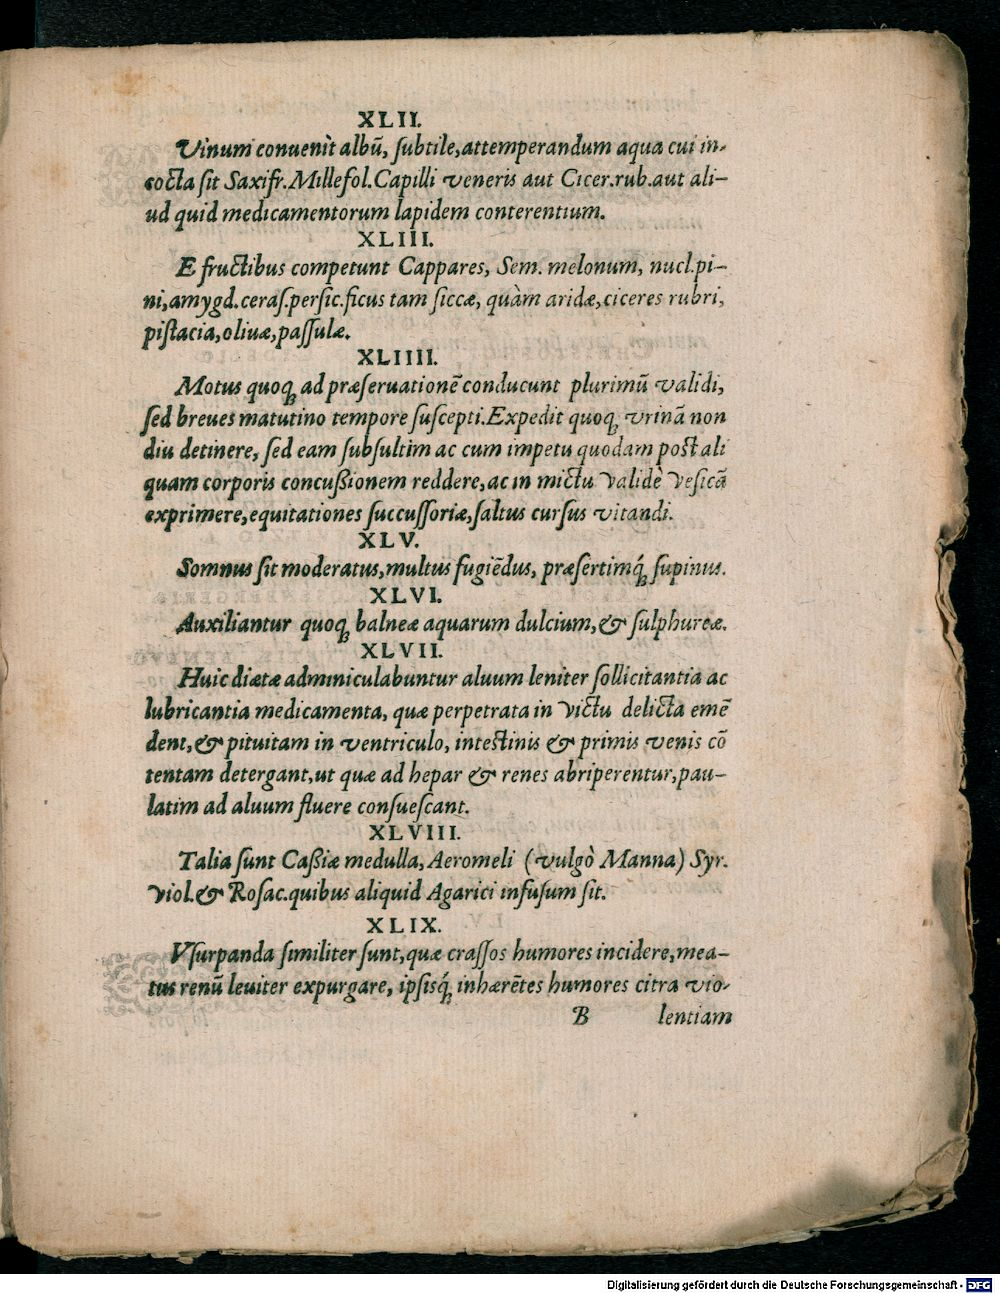 XLII.
Vinum conuenit albū, subtile, attemperandum aqua cui in-
cocta sit Saxifr. Millefol. Capilli veneris aut Cicer. rub. aut ali-
ud quid medicamentorum lapidem conterentium.
XLIII.
E fructibus competunt Cappares, Sem. melonum, nucl. pi-
ni, amygd. ceras. persic. ficus tam siccæ, quàm aridæ, ciceres rubri,
pistacia, oliuæ, passulæ.
XLIIII.
Motus quoq; ad præseruationē conducunt plurimū validi,
sed breues matutino tempore suscepti. Expedit quoq; vrinā non
diu detinere, sed eam subsultim ac cum impetu quodam post ali
quam corporis concußionem reddere, ac in mictu validè vesicā
exprimere, equitationes succussoriæ, saltus cursus vitandi.
XLV.
Somnus sit moderatus, multus fugiēdus, præsertimq́; supinus.
XLVI.
Auxiliantur quoq; balneæ aquarum dulcium, & sulphureæ.
XLVII.
Huic diætæ adminiculabuntur aluum leniter sollicitantia ac
lubricantia medicamenta, quæ perpetrata in victu delicta emē
dent, & pituitam in ventriculo, intestinis & primis venis cō
tentam detergant, ut quæ ad hepar & renes abriperentur, pau-
latim ad aluum fluere consuescant.
XLVIII.
Talia sunt Caßiæ medulla, Aeromeli (vulgò Manna) Syr.
viol. & Rosac. quibus aliquid Agarici infusum sit.
XLIX.
Vsurpanda similiter sunt, quæ crassos humores incidere, mea-
tus renū leuiter expurgare, ipsisq́; inhærētes humores citra vio-
B lentiam
Digitalisierung gefördert durch die Deutsche Forschungsgemeinschaft - DFG